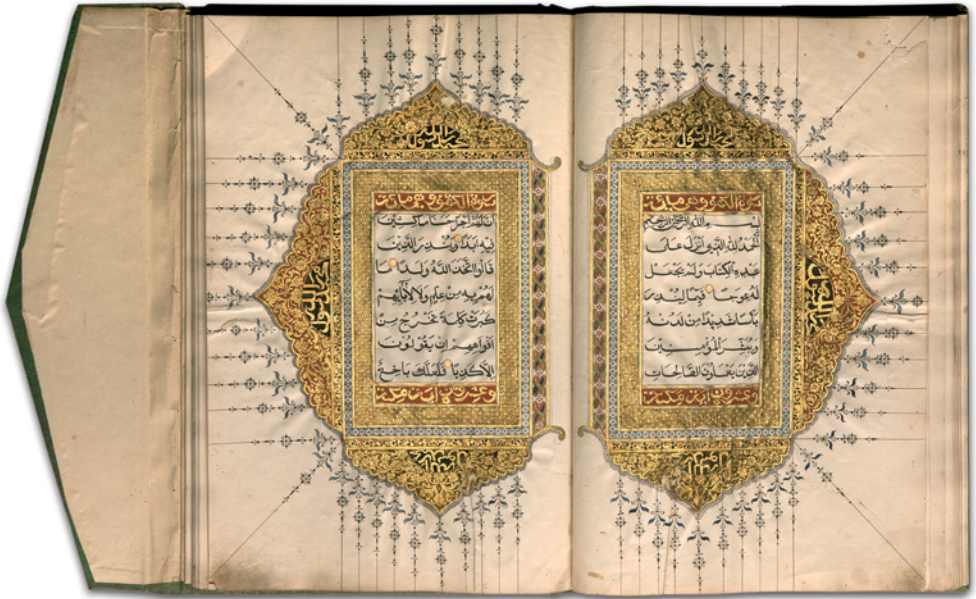 سورة الكهف وهي مائة
بسم الله الرحمن الرحيم
الحمد لله الذي انزل على
عبده الكتاب ولم يجعل
له عوجا قيما لينذر
بأسا شديدا من لدنه
ويبشر المؤمنين
الذين يعملون الصالحات
مكية
سورة الكهف وهي مائة
ان لهم اجرا حسنا ماكثين
فيه ابدا وينذر الذين
قالوا اتخذ الله ولدا ما
لهم به من علم ولا لابائهم
كبرت كلمة تخرج من
افواههم ان يقولون
الا كذبا فلعلك باخع
مكية